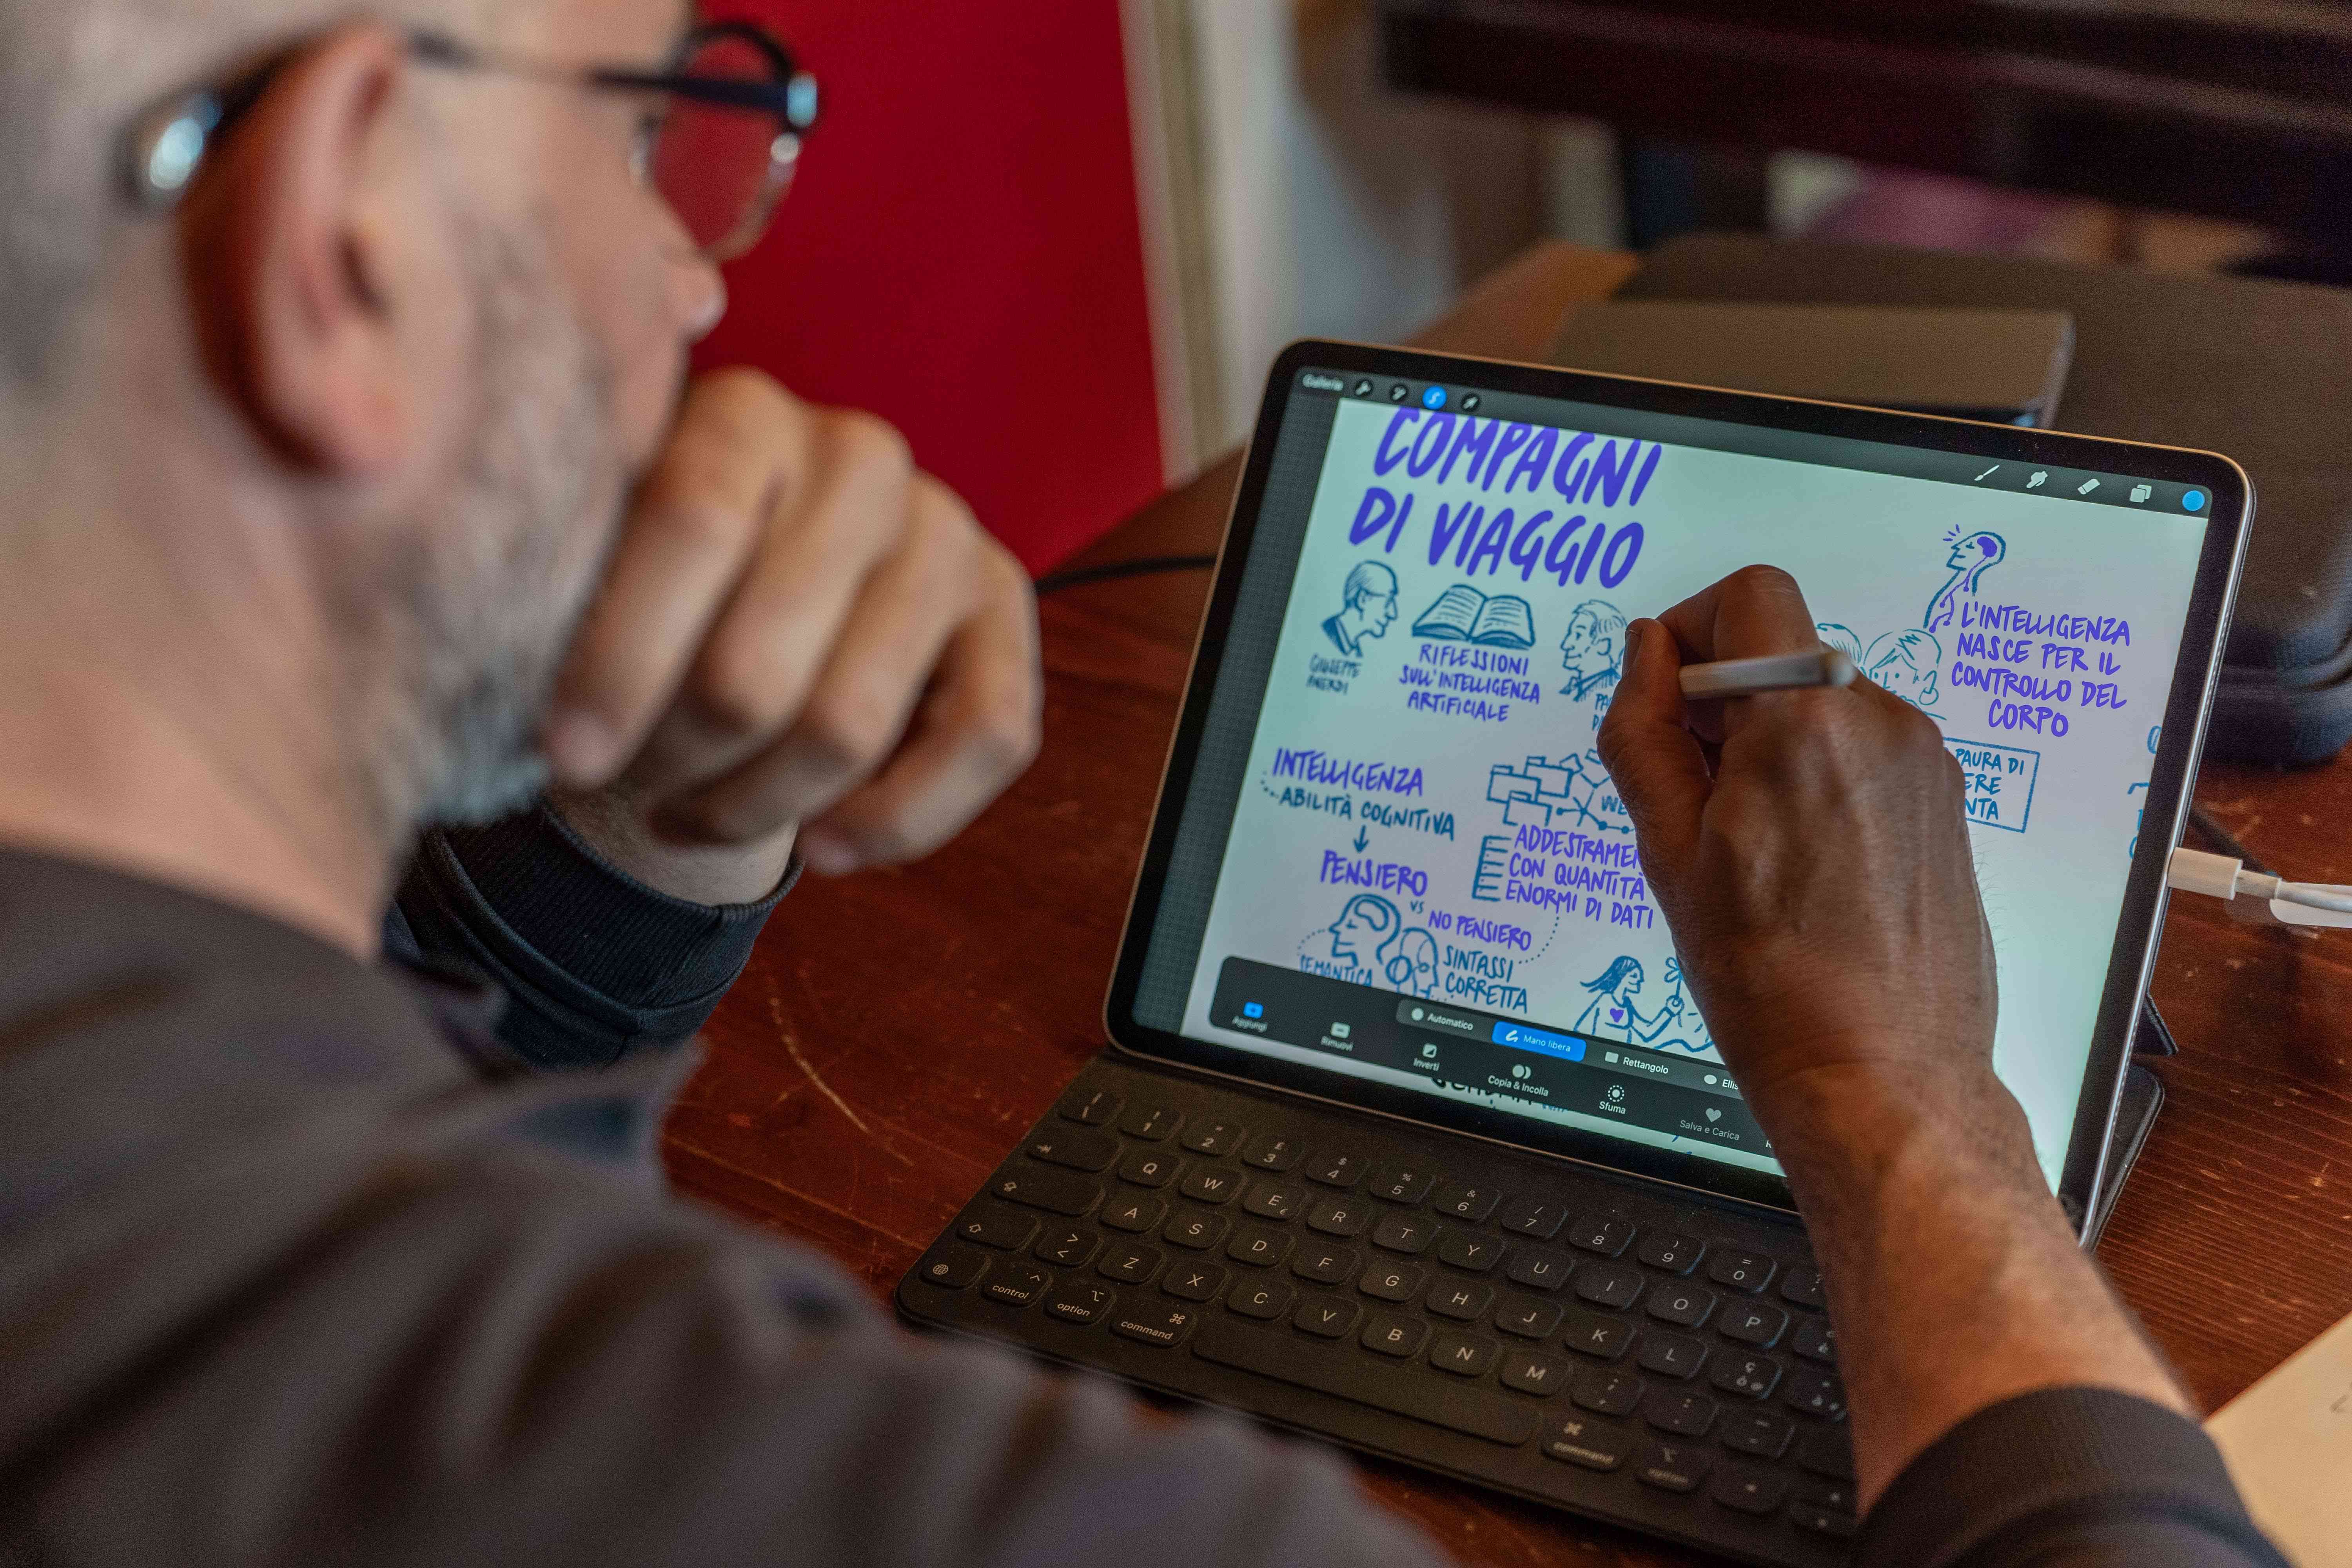 Galleria
COMPAGNI
DI VIAGGIO
GIUSEPPE
RIFLESSIONI
SULL'INTELLIGENZA
ARTIFICIALE
L'INTELLIGENZA
NASCE PER IL
CONTROLLO DEL
CORPO
PAURA DI
INTELLIGENZA
ABILITÀ COGNITIVA
PENSIERO
VS
NO PENSIERO
SEMANTICA
SINTASSI
CORRETTA
ADDESTRAMEN
CON QUANTITÀ
ENORMI DI DATI
Automatico
Mano libera
Rettangolo
Aggiungi
Rimuovi
Inverti
Copia & Incolla
Sfuma
Salva e Carica
1 2 3 4 5 6 7 8 9 0
Q W E R T Y U I O P
A S D F G H J K L
Z X C V B N M
control
option
command
command
option